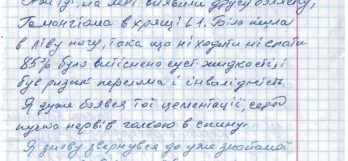 на мрт виявили другу болячку,
Гемангіома в хрящі L1. Біль йшла
в ліву ногу, така що ні ходити ні спати
85% було витіснено суст жидкості, і
був ризик перелома і інвалідність.
Я дуже боявся тої цементації, серед
пучка нервів голкою в спину.
Я знову звернувся до уже знайомої